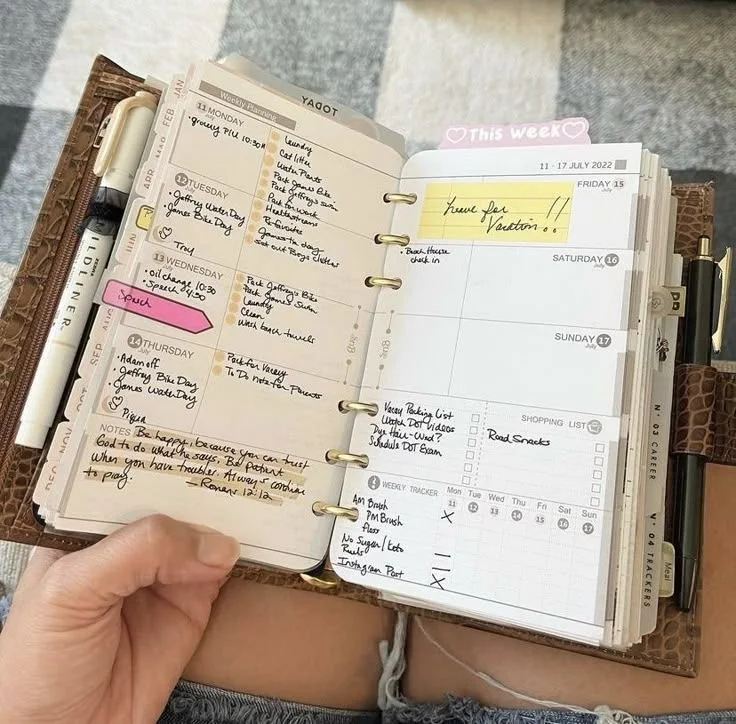 JAN
FEB
MAR
APR
JUN
AUG
SEP
OCT
NOV
DEC
MILDLINER
ZEBRA
Weekly Planning
TODAY
11 MONDAY
July
• grocery P/U 10:30
Laundry
Cat litter
Water Plants
Pack James Bike
Pack Jeffrey's swim
Pack for work
12 TUESDAY
July
• Jeffrey Water Day
• James Bike Day
Troy
set out Boys clothes
13 WEDNESDAY
July
• oil change 10:30
• Speech 4:30
Speech
Pack Jeffrey's Bike
Pack James Swim
Laundry
Clean
Wash beach towels
14 THURSDAY
July
• Adam off
• Jeffrey Bike Day
• James Water Day
Pack for Vacay
To Do note for Parents
NOTES Be happy because you can trust
God to do what he says. Be patient
when you have trouble. Always continue
to pray.
- Romans 12:12
This week
11 - 17 JULY 2022
FRIDAY 15
July
Leave for
Vacation..!!
SATURDAY 16
July
• Beach House
check in
SUNDAY 17
July
Vacay Packing List
Watch DOT videos
Dye Hair - Wed?
Schedule DOT Exam
SHOPPING LIST
Road Snacks
WEEKLY TRACKER
Mon Tue Wed Thu Fri Sat Sun
11 12 13 14 15 16 17
AM Brush X
PM Brush
Floss
No Sugar/Keto
Reels
Instagram Post X
N° 03 CAREER
N° 04 TRACKERS
Meal